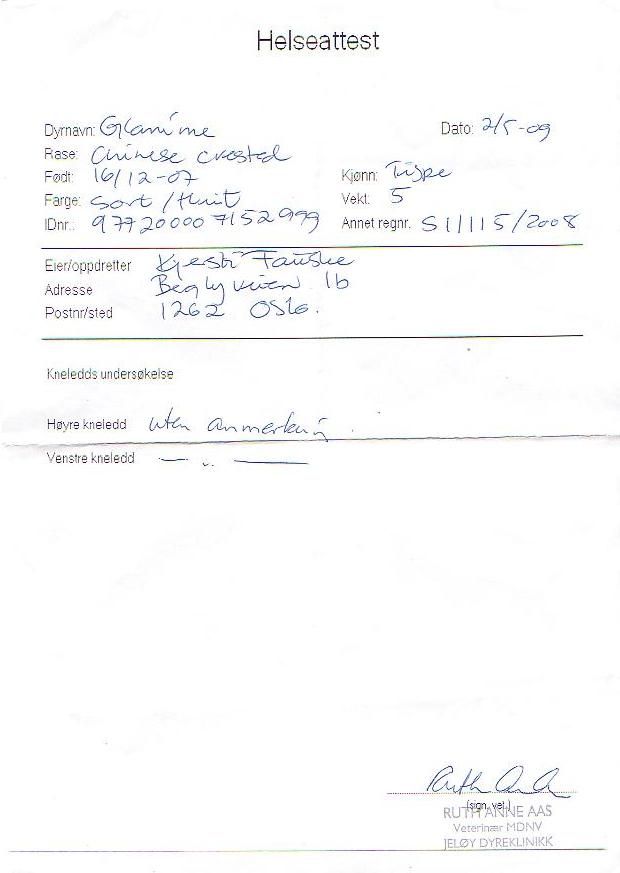 Helseattest
Dyrnavn: Glamime
Dato: 2/5-09
Rase: Chinese crested
Født: 16/12-07
Kjønn: Tispe
Farge: Sort/Hvit
Vekt: 5
IDnr.: 977200007152999
Annet regnr. S11115/2008
Eier/oppdretter Kjersti Fauske
Adresse 1b
Postnr/sted 1262 Oslo.
Kneledds undersøkelse
Høyre kneledd uten anmerkning.
Venstre kneledd — " —
(sign. vet.)
RUTH ANNE AAS
Veterinær MDNV
JELØY DYREKLINIKK